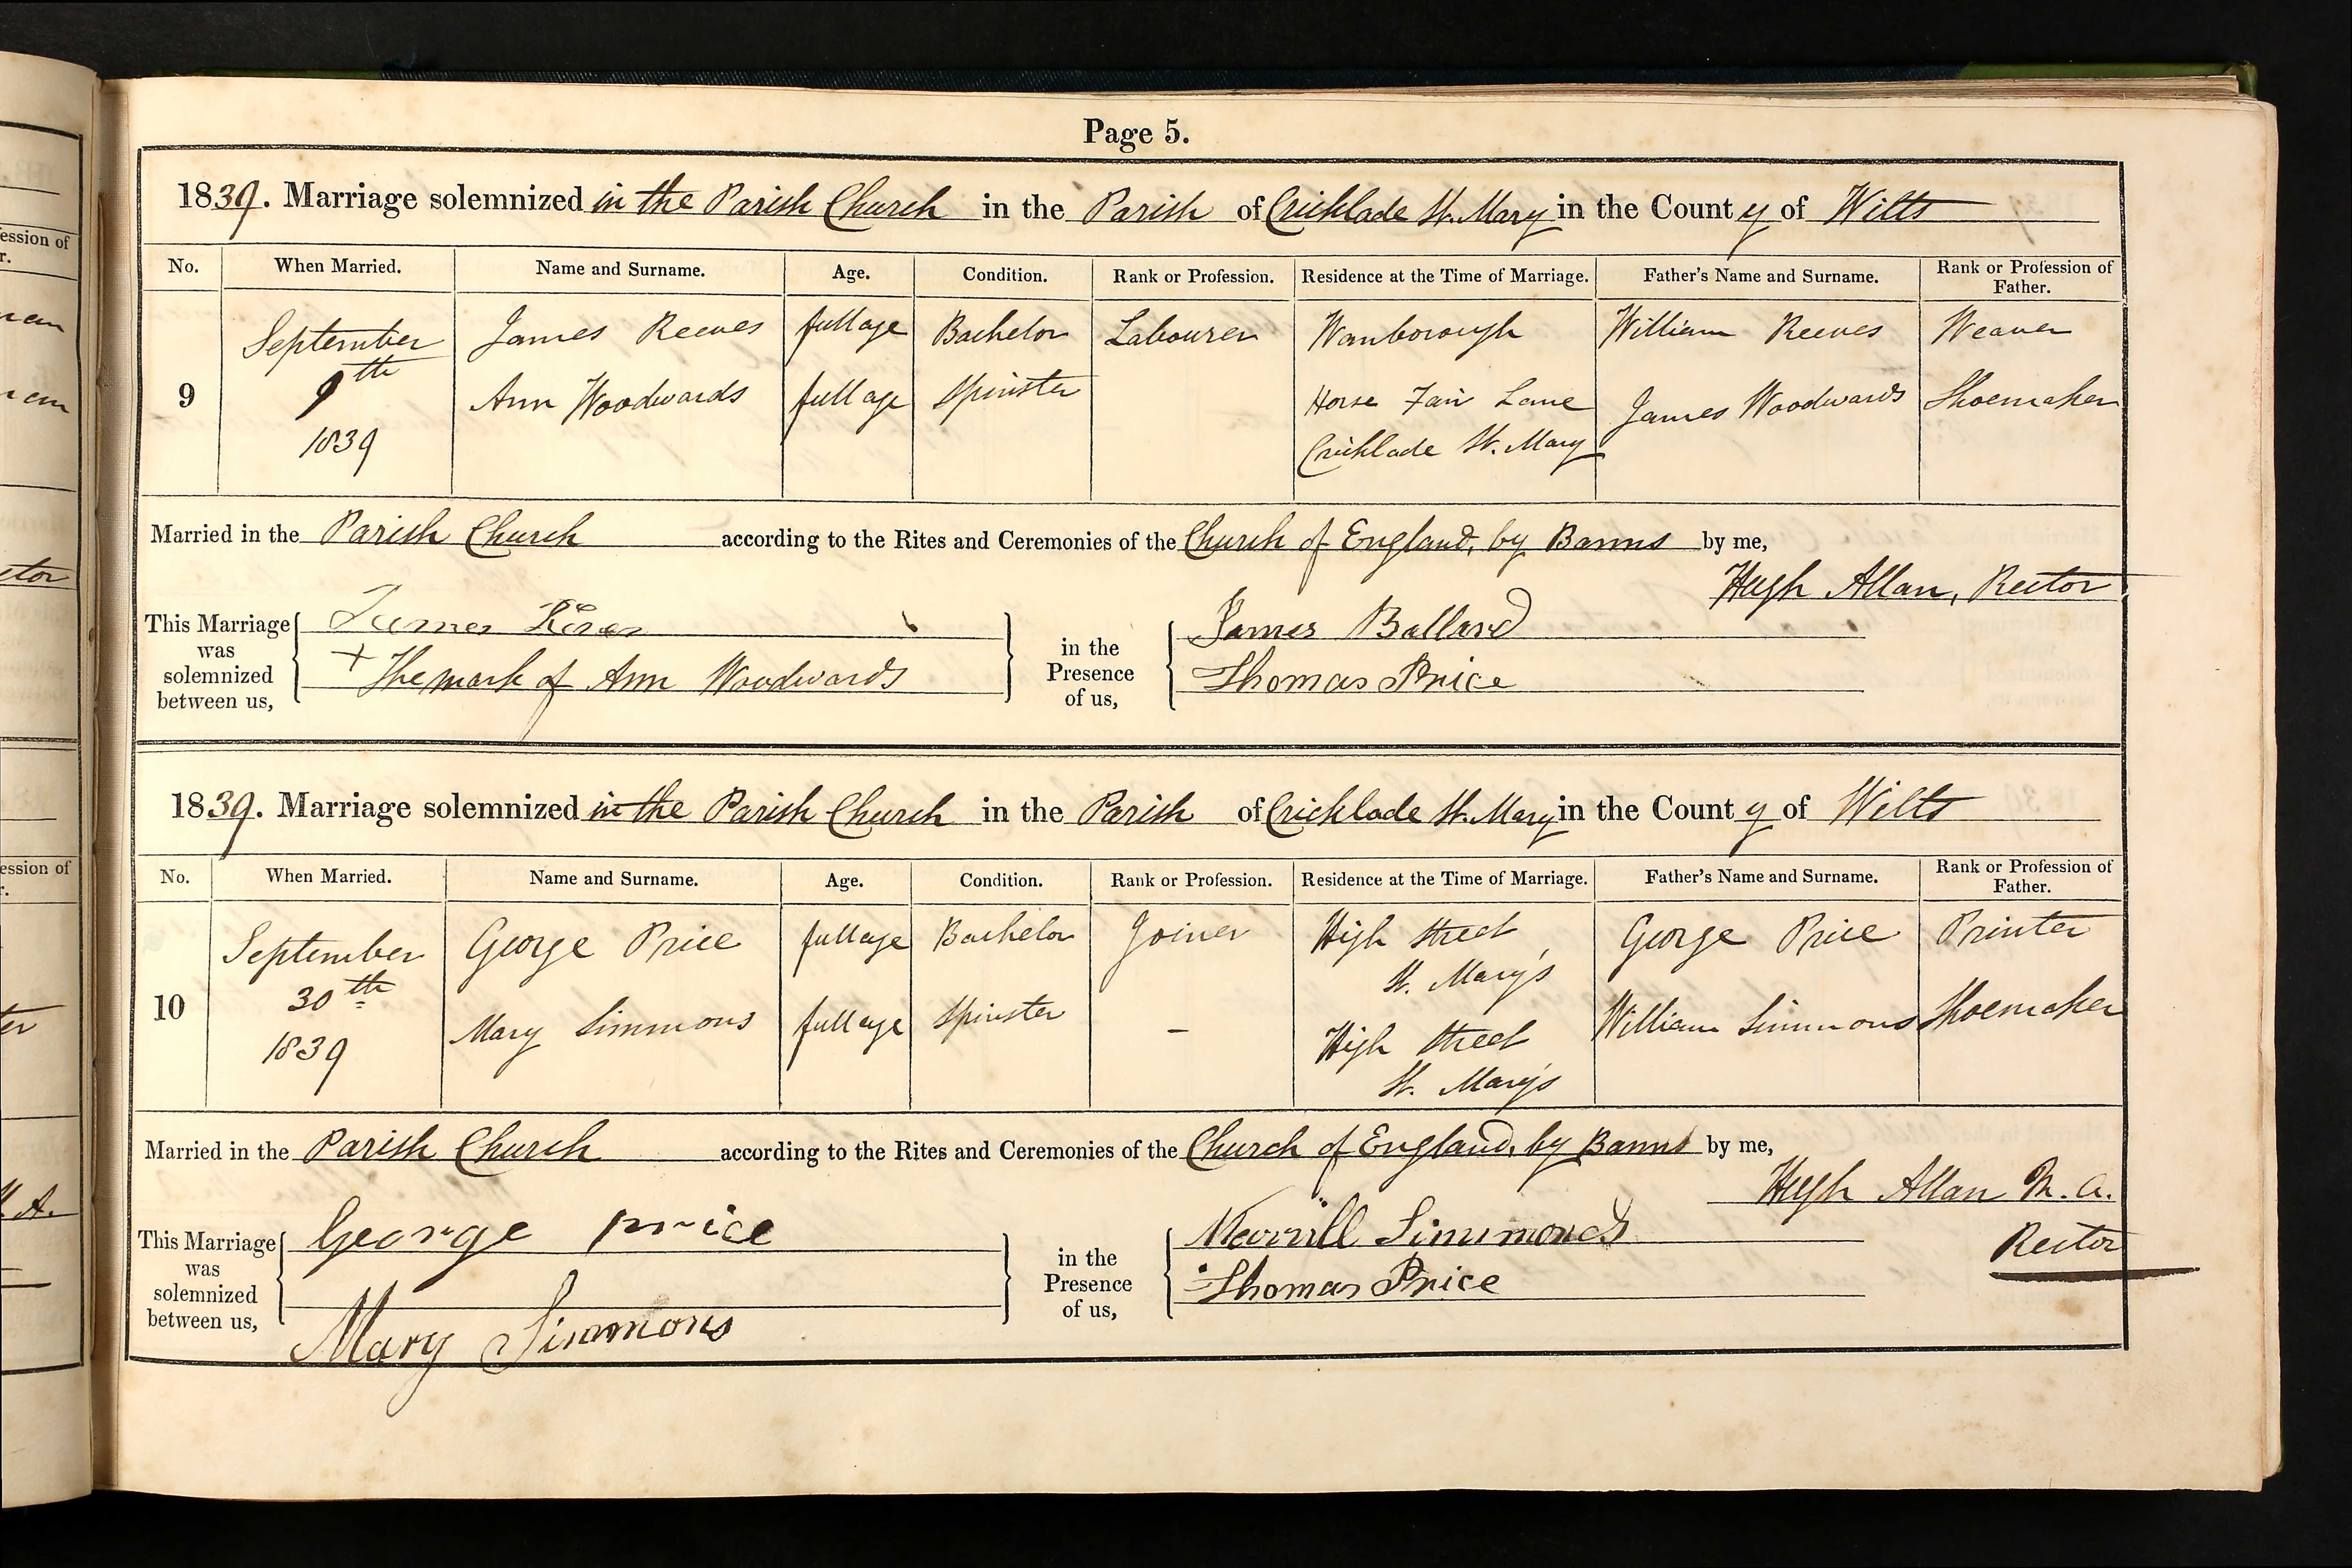 Page 5.
1839. Marriage solemnized in the Parish Church in the Parish of Cricklade St. Mary in the County of Wilts
No. When Married. Name and Surname. Age. Condition. Rank or Profession. Residence at the Time of Marriage. Father's Name and Surname. Rank or Profession of Father.
September James Reeves full age Bachelor Labourer Wanborough William Reeves Weaver
9 9th Ann Woodwards full age Spinster Horse Fair Lane James Woodwards Shoemaker
1839 Cricklade St. Mary
Married in the Parish Church according to the Rites and Ceremonies of the Church of England, by Banns by me,
Hugh Allan, Rector
This Marriage was solemnized between us,
James
+ The mark of Ann Woodwards
in the Presence of us,
James Ballard
Thomas Price
1839. Marriage solemnized in the Parish Church in the Parish of Cricklade St. Mary in the County of Wilts
No. When Married. Name and Surname. Age. Condition. Rank or Profession. Residence at the Time of Marriage. Father's Name and Surname. Rank or Profession of Father.
September George Price full age Bachelor Joiner High Street George Price Printer
St. Mary's
10 30th Mary Simmons full age Spinster – High Street William Simmons Shoemaker
1839 St. Mary's
Married in the Parish Church according to the Rites and Ceremonies of the Church of England, by Banns by me,
Hugh Allan M.A.
Rector
This Marriage was solemnized between us,
George price
Mary Simmons
in the Presence of us,
Simmonds
Thomas Price
ession of
r.
etor
ession of
r.